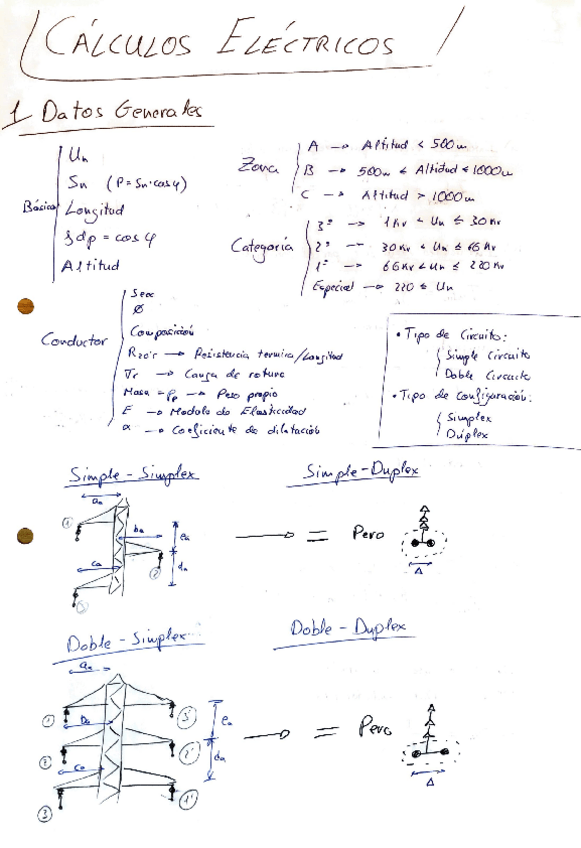 CÁLCULOS ELÉCTRICOS
1 Datos Generales
Básico
Un
Sn (P=Sn·cosφ)
Longitud
fdp = cosφ
Altitud
Zona
A → Altitud < 500m
B → 500m < Altitud < 1000m
C → Altitud > 1000m
Categoría
3ª → 1Kv < Un ≤ 30Kv
2ª → 30Kv < Un ≤ 66Kv
1ª → 66Kv < Un ≤ 220Kv
Especial → 220 ≤ Un
Conductor
Secc
Ø
Composición
R20ºc → Resistencia termica/Longitud
Tr → Carga de rotura
Masa = Pp → Peso propio
E → Modulo de Elasticidad
α → Coeficiente de dilatación
• Tipo de Circuito:
Simple Circuito
Doble Circuito
• Tipo de Configuración:
Simplex
Dúplex
Simple - Simplex
Simple - Duplex
aa
1
ba
ea
ca
da
2
3
→ = Pero
Δ
Doble - Simplex
Doble - Duplex
aa
1
3'
ba
ea
2
2'
ca
da
3
1'
→ = Pero
Δ